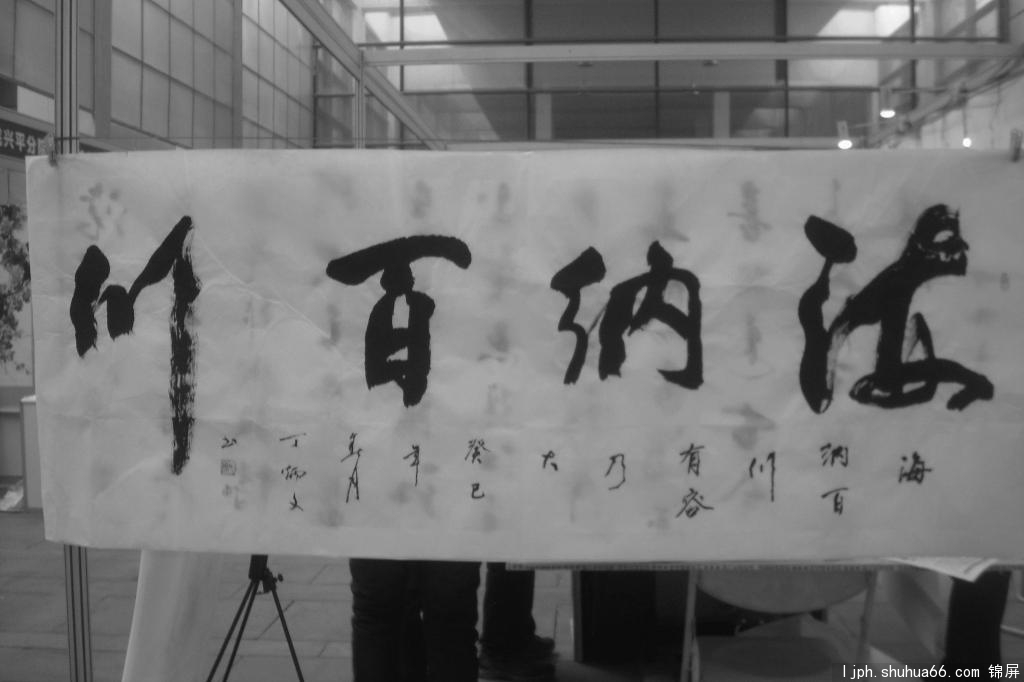 海纳百川
海
纳百
川
有容
乃
大
癸巳
年
春月
丁炳文
书
兴平分
ljph.shuhua66.com 锦屏